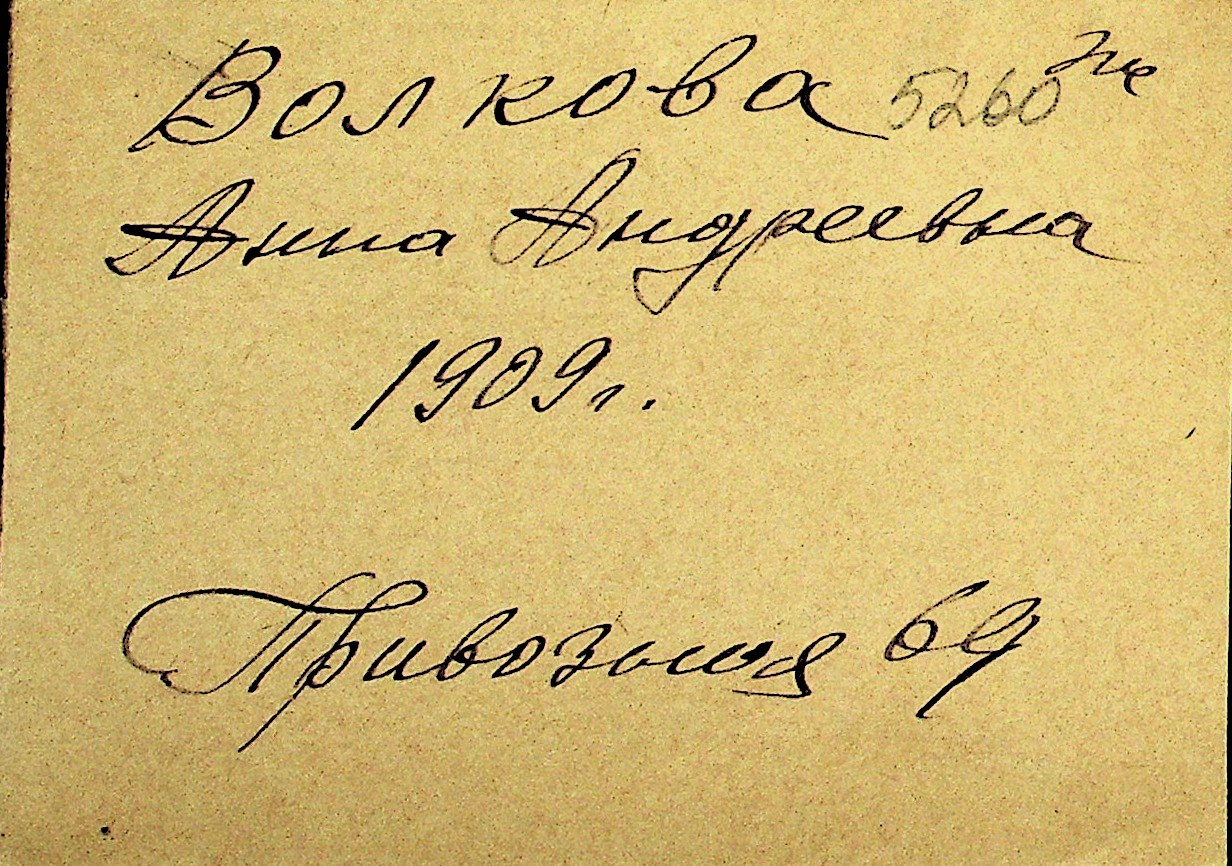 Волкова 5260
Анна Андреевна
1909г.
Привозная 69